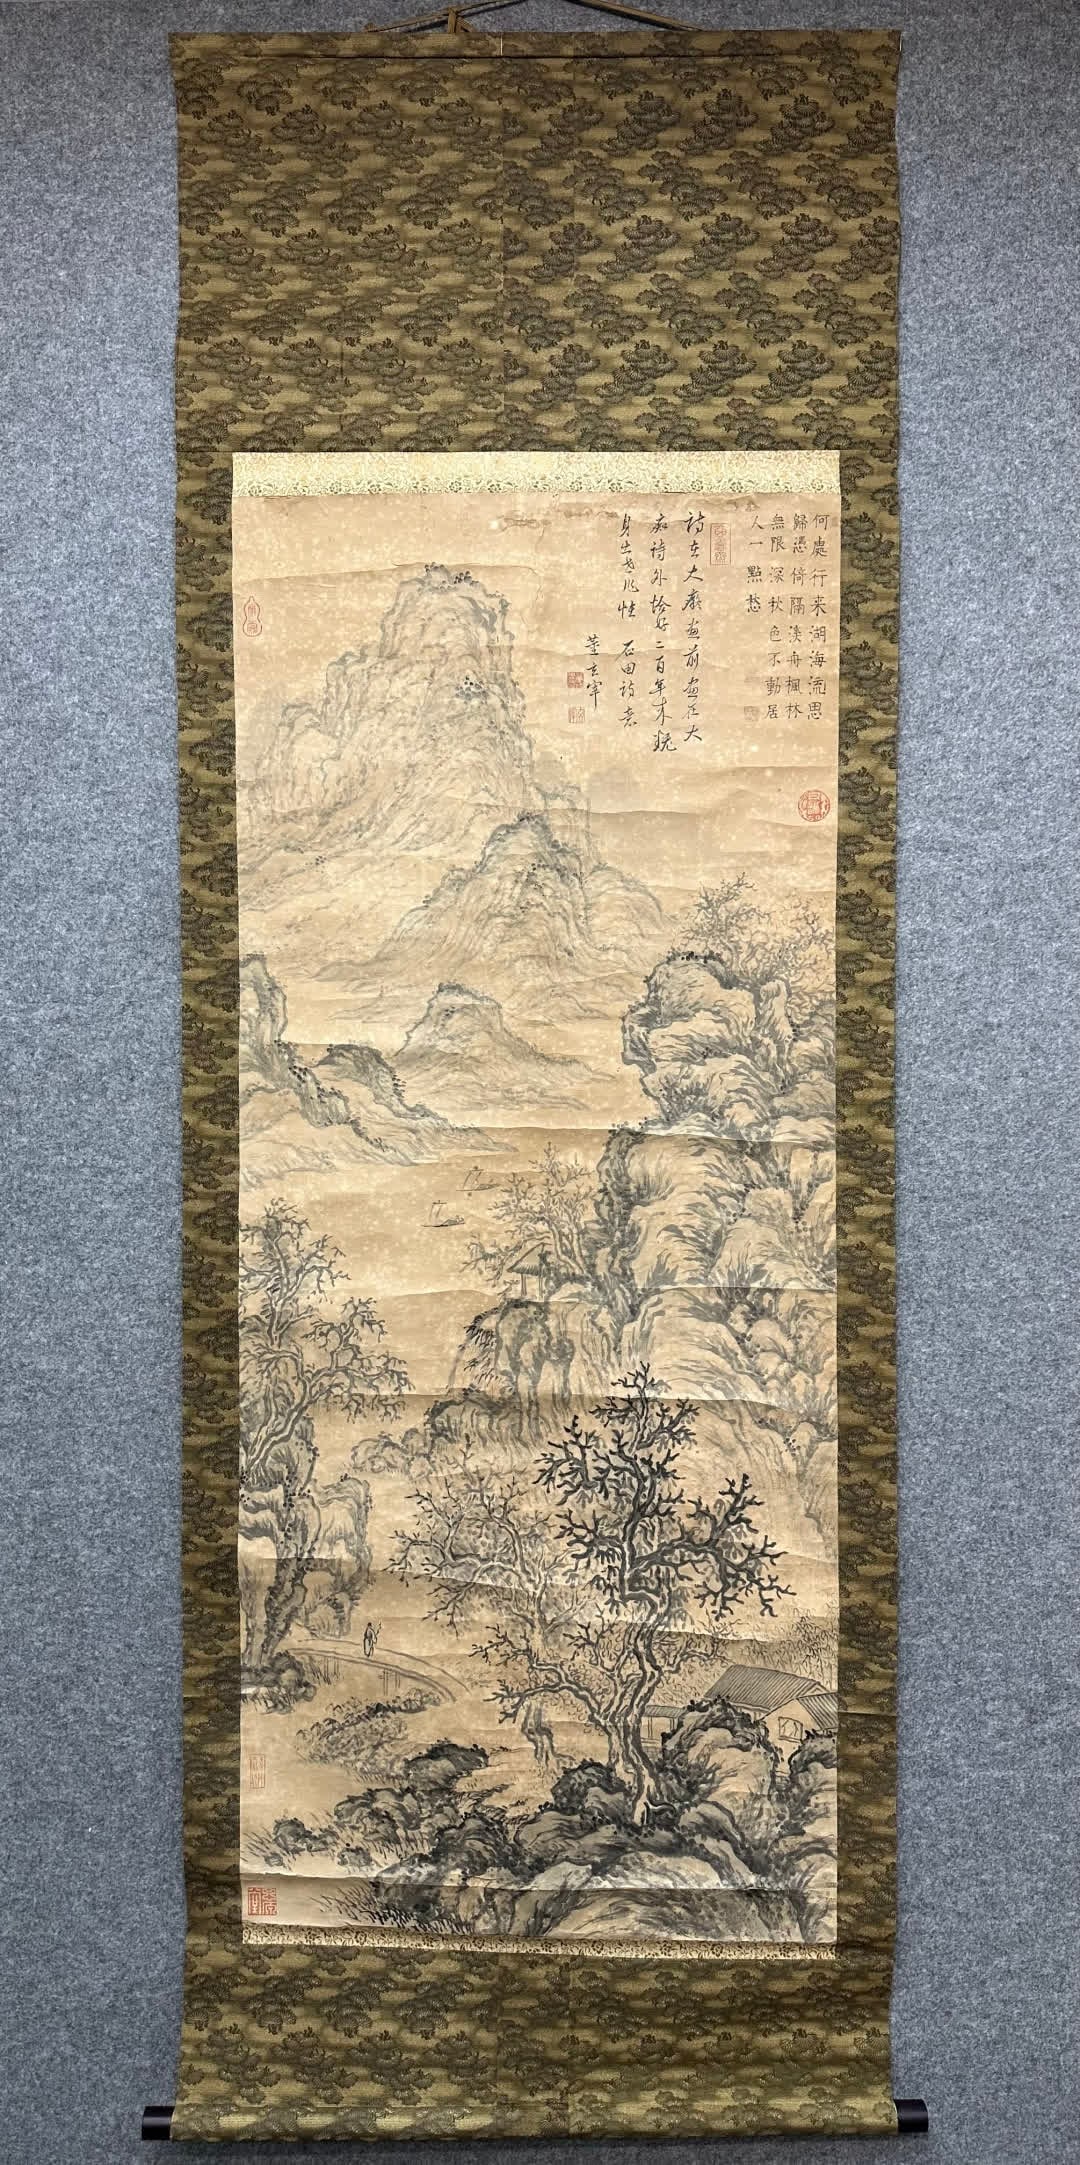 何處行来湖海流思
歸憑倚隔溪舟楓林
無限深秋色不動居
人一點愁
詩在大癡畫前畫在大
癡詩外恰好二百年来
身出世作怪
石田詩意
董玄宰